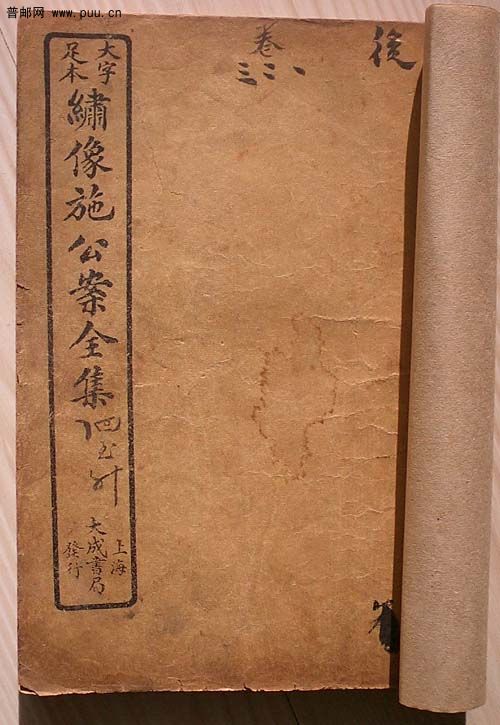 普邮网 www.puu.cn
後
卷
一二三
大字
足本
繡像施公案全集
上海
大成書局
發行